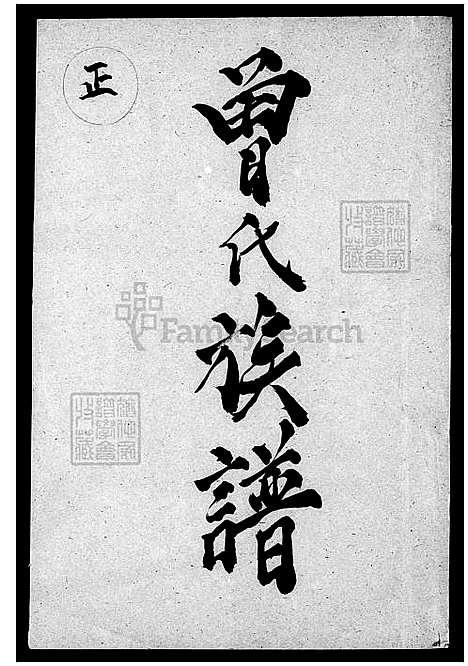 正
曾氏族譜
FamilySearch